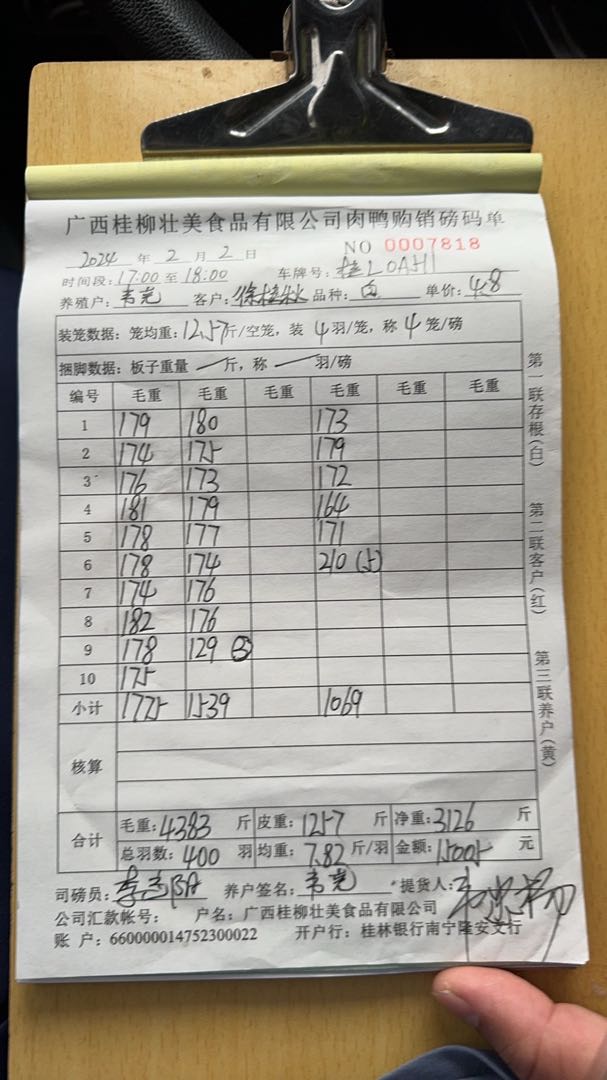 广西桂柳壮美食品有限公司肉鸭购销磅码单
2024 年 2 月 2 日 NO 0007818
时间段：17:00 至 18:00 车牌号：桂L0AH1
养殖户： 客户：徐桂秋 品种：白 单价：4.8
装笼数据：笼均重：12.57斤/空笼，装 4 羽/笼，称 4 笼/磅
捆脚数据：板子重量 — 斤，称 — 羽/磅
编号 毛重 毛重 毛重 毛重 毛重 毛重
1 179 180 173
2 174 175 179
3 176 173 172
4 181 179 164
5 178 177 171
6 178 174 210 (5)
7 174 176
8 182 176
9 178 129 ③
10 175
小计 1775 1539 1069
核算
合计
毛重：4383 斤 皮重：1257 斤 净重：3126 斤
总羽数：400 羽 均重：7.82 斤/羽 金额：15005 元
司磅员： 养户签名： 提货人：
公司汇款帐号： 户名：广西桂柳壮美食品有限公司
账 户：660000014752300022 开户行：桂林银行南宁隆安支行
第一联存根（白） 第二联客户（红） 第三联养户（黄）